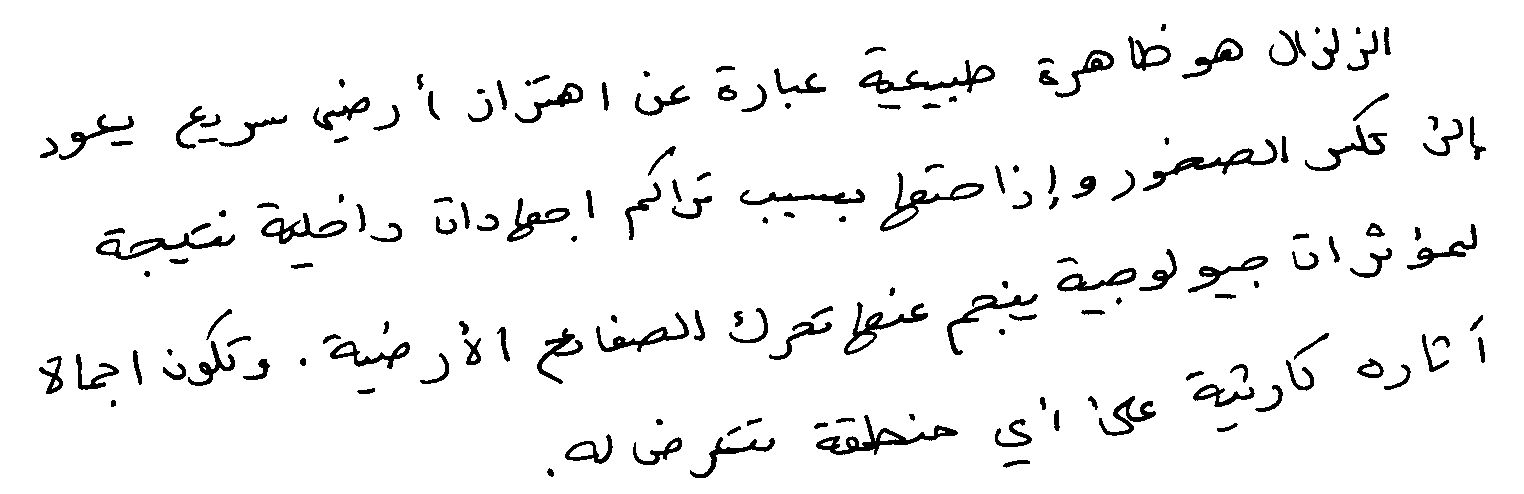 الزلزال هو ظاهرة طبيعية عبارة عن اهتزاز أرضي سريع يعود
إلى تكسر الصخور وإزاحتها بسبب تراكم اجهادات داخلية نتيجة
لمؤثرات جيولوجية ينجم عنها تحرك الصفائح الأرضية. وتكون اجمالا
آثاره كارثية على أي منطقة تتعرض له.